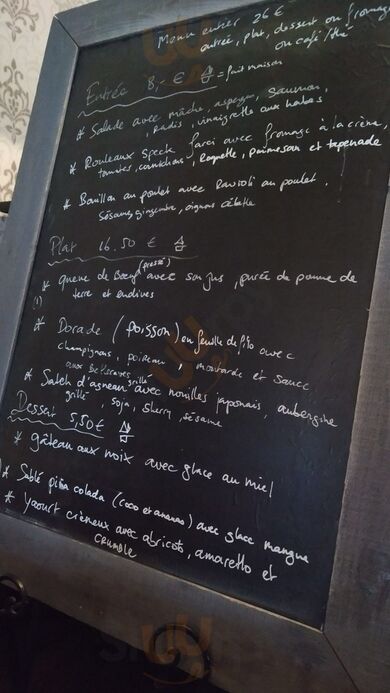 Menu entier 26 €
entrée, plat, dessert ou fromage
ou café/thé
Entrée 8,- € = fait maison
* Salade avec mâche, asperges, saumon,
, radis, vinaigrette aux herbes
* Rouleaux speck farci avec fromage à la crème,
tomates, cornichons, Roquette, parmesan et tapenade
* Bouillon au poulet avec Ravioli au poulet,
sésame, gingembre, oignons
Plat 16.50 €
(pressé)
* queue de Boeuf avec son jus, purée de pomme de
(1) terre et endives
* Dorade (poisson) en feuille de filo avec
champignons, poireau, moutarde et sauce
aux Betteraves
grillé
* d'agneau avec nouilles japonais, aubergine
grillé, soja, sésame
Dessert 5,50 €
* gâteau aux noix avec glace au miel
* Sablé piña colada (coco et ananas) avec glace mangue
* Yaourt crèmeux avec abricots, amaretto et
crumble